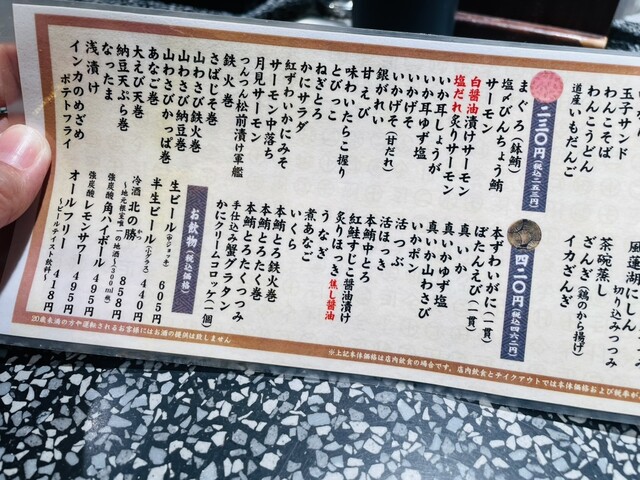 玉子サンド
わんこそば
わんこうどん
道産いもだんご
風蓮湖にしん
切り込みつつみ
茶碗蒸し
ざんぎ(鶏のから揚げ)
イカざんぎ
二三〇円(税込二五三円)
まぐろ(鉢鮪)
塩〆びんちょう鮪
サーモン
白醤油漬けサーモン
塩だれ炙りサーモン
いか耳しょうが
いか耳ゆず塩
いかげそ
いかげそ(甘だれ)
銀がれい
甘えび
味わいたらこ握り
とびっこ
ねぎとろ
かにサラダ
紅ずわいかにみそ
サーモン中落ち
月見サーモン
つんつん松前漬け軍艦
鉄火巻
さばじそ巻
山わさび鉄火巻
山わさび納豆巻
山わさびかっぱ巻
あなご巻
大えび天巻
納豆天ぷら巻
なったま
浅漬け
インカのめざめ
ポテトフライ
四二〇円(税込四六二円)
本ずわいがに(一貫)
ぼたんえび(一貫)
真いか
真いかゆず塩
真いか山わさび
いかポン
活つぶ
活ほっき
本鮪中とろ
紅鮭すじこ醤油漬け
炙りほっき焦し醤油
うなぎ
煮あなご
いくら
本鮪とろ鉄火巻
本鮪とろたく巻
本鮪とろたくつつみ
手仕込み蟹グラタン
かにクリームコロッケ(一個)
お飲物(税込価格)
生ビール(中ジョッキ) 605円
半生ビール(小グラス) 440円
冷酒 北の勝
〜地元根室唯一の地酒〜(300ml瓶) 858円
強炭酸 角ハイボール 495円
強炭酸 レモンサワー 495円
オールフリー
〜ビールテイスト飲料〜 418円
20歳未満の方や運転されるお客様にはお酒の提供は致しません
※上記本体価格は店内飲食の場合です。店内飲食とテイクアウトでは本体価格および税率が